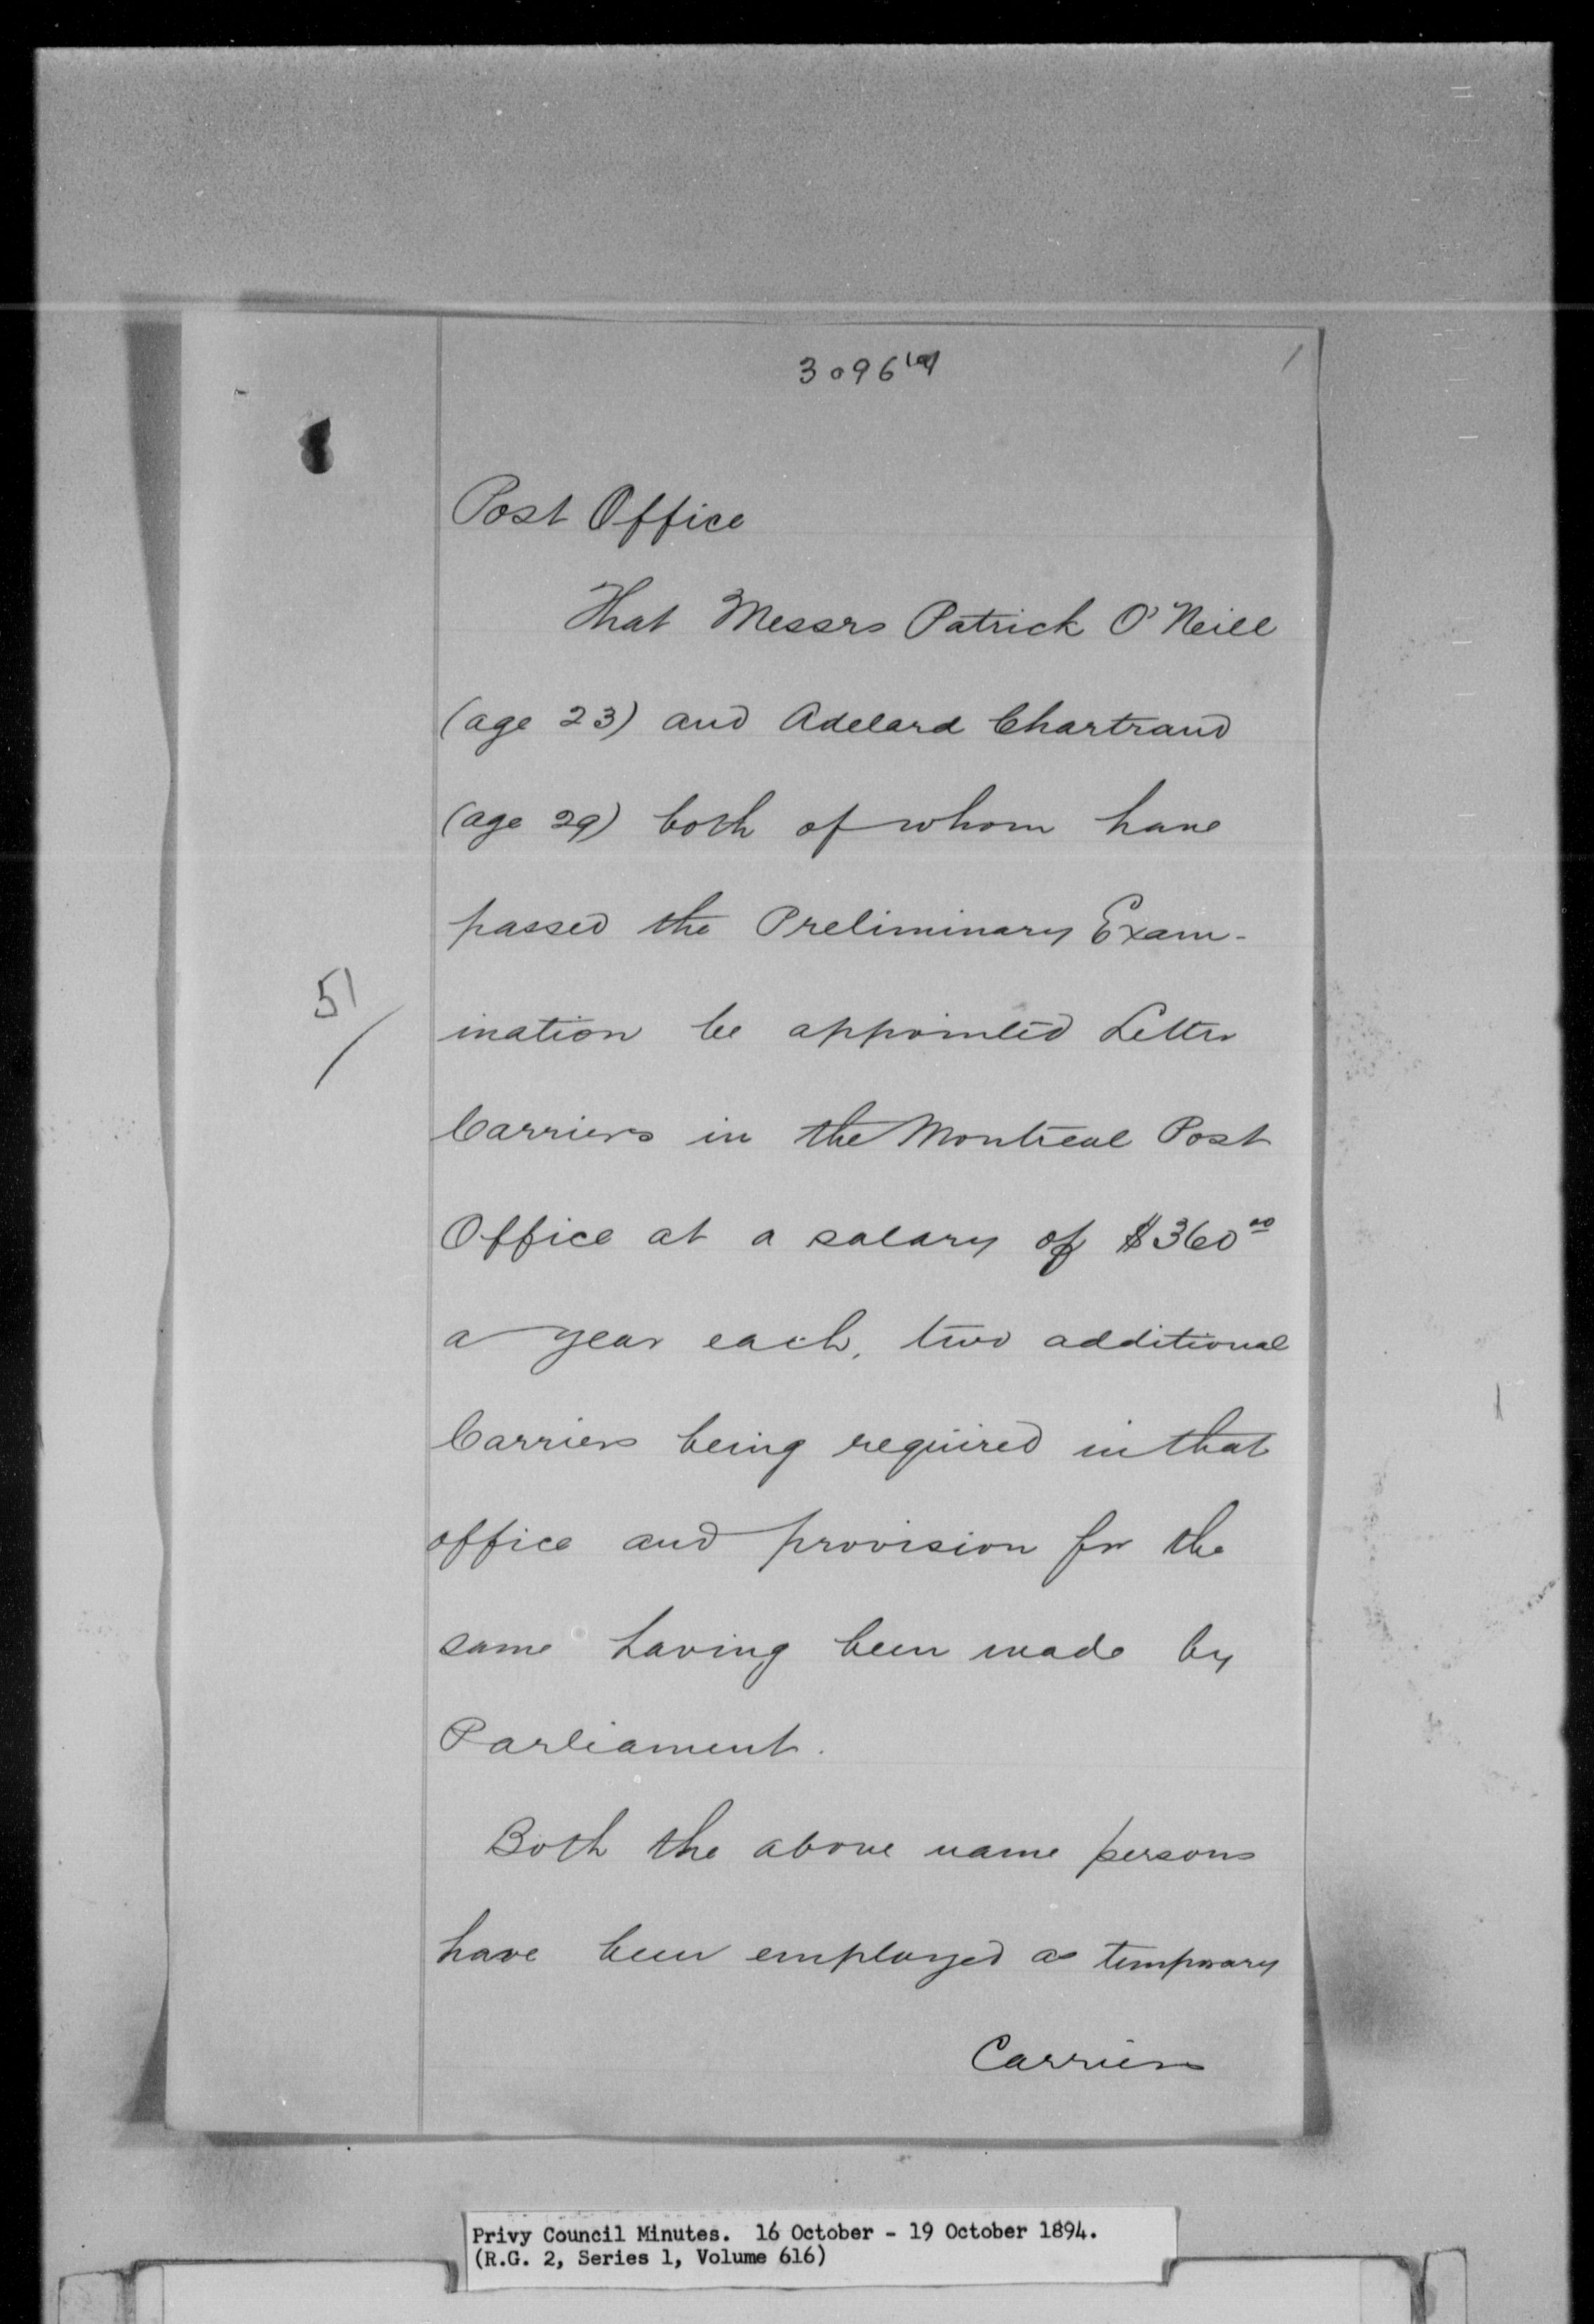 3096(a)
1
Post Office
That Messrs Patrick O'Neill
(age 23) and Adelard Chartrand
(age 29) both of whom have
passed the Preliminary Exam-
51
ination be appointed Letter
Carriers in the Montreal Post
Office at a salary of $360⁰⁰
a year each, two additional
Carriers being required in that
office and provision for the
same having been made by
Parliament.
Both the above name persons
have been employed as temporary
Carriers
Privy Council Minutes. 16 October - 19 October 1894.
(R.G. 2, Series 1, Volume 616)